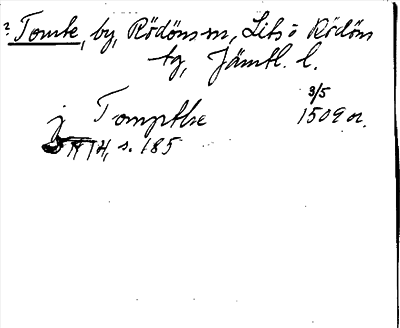 ? Tomte, by, Rödöns sn, Lits o Rödöns
tg, Jämtl. l.
j Tompthe 3/5 1509 or.
JHH, s. 185